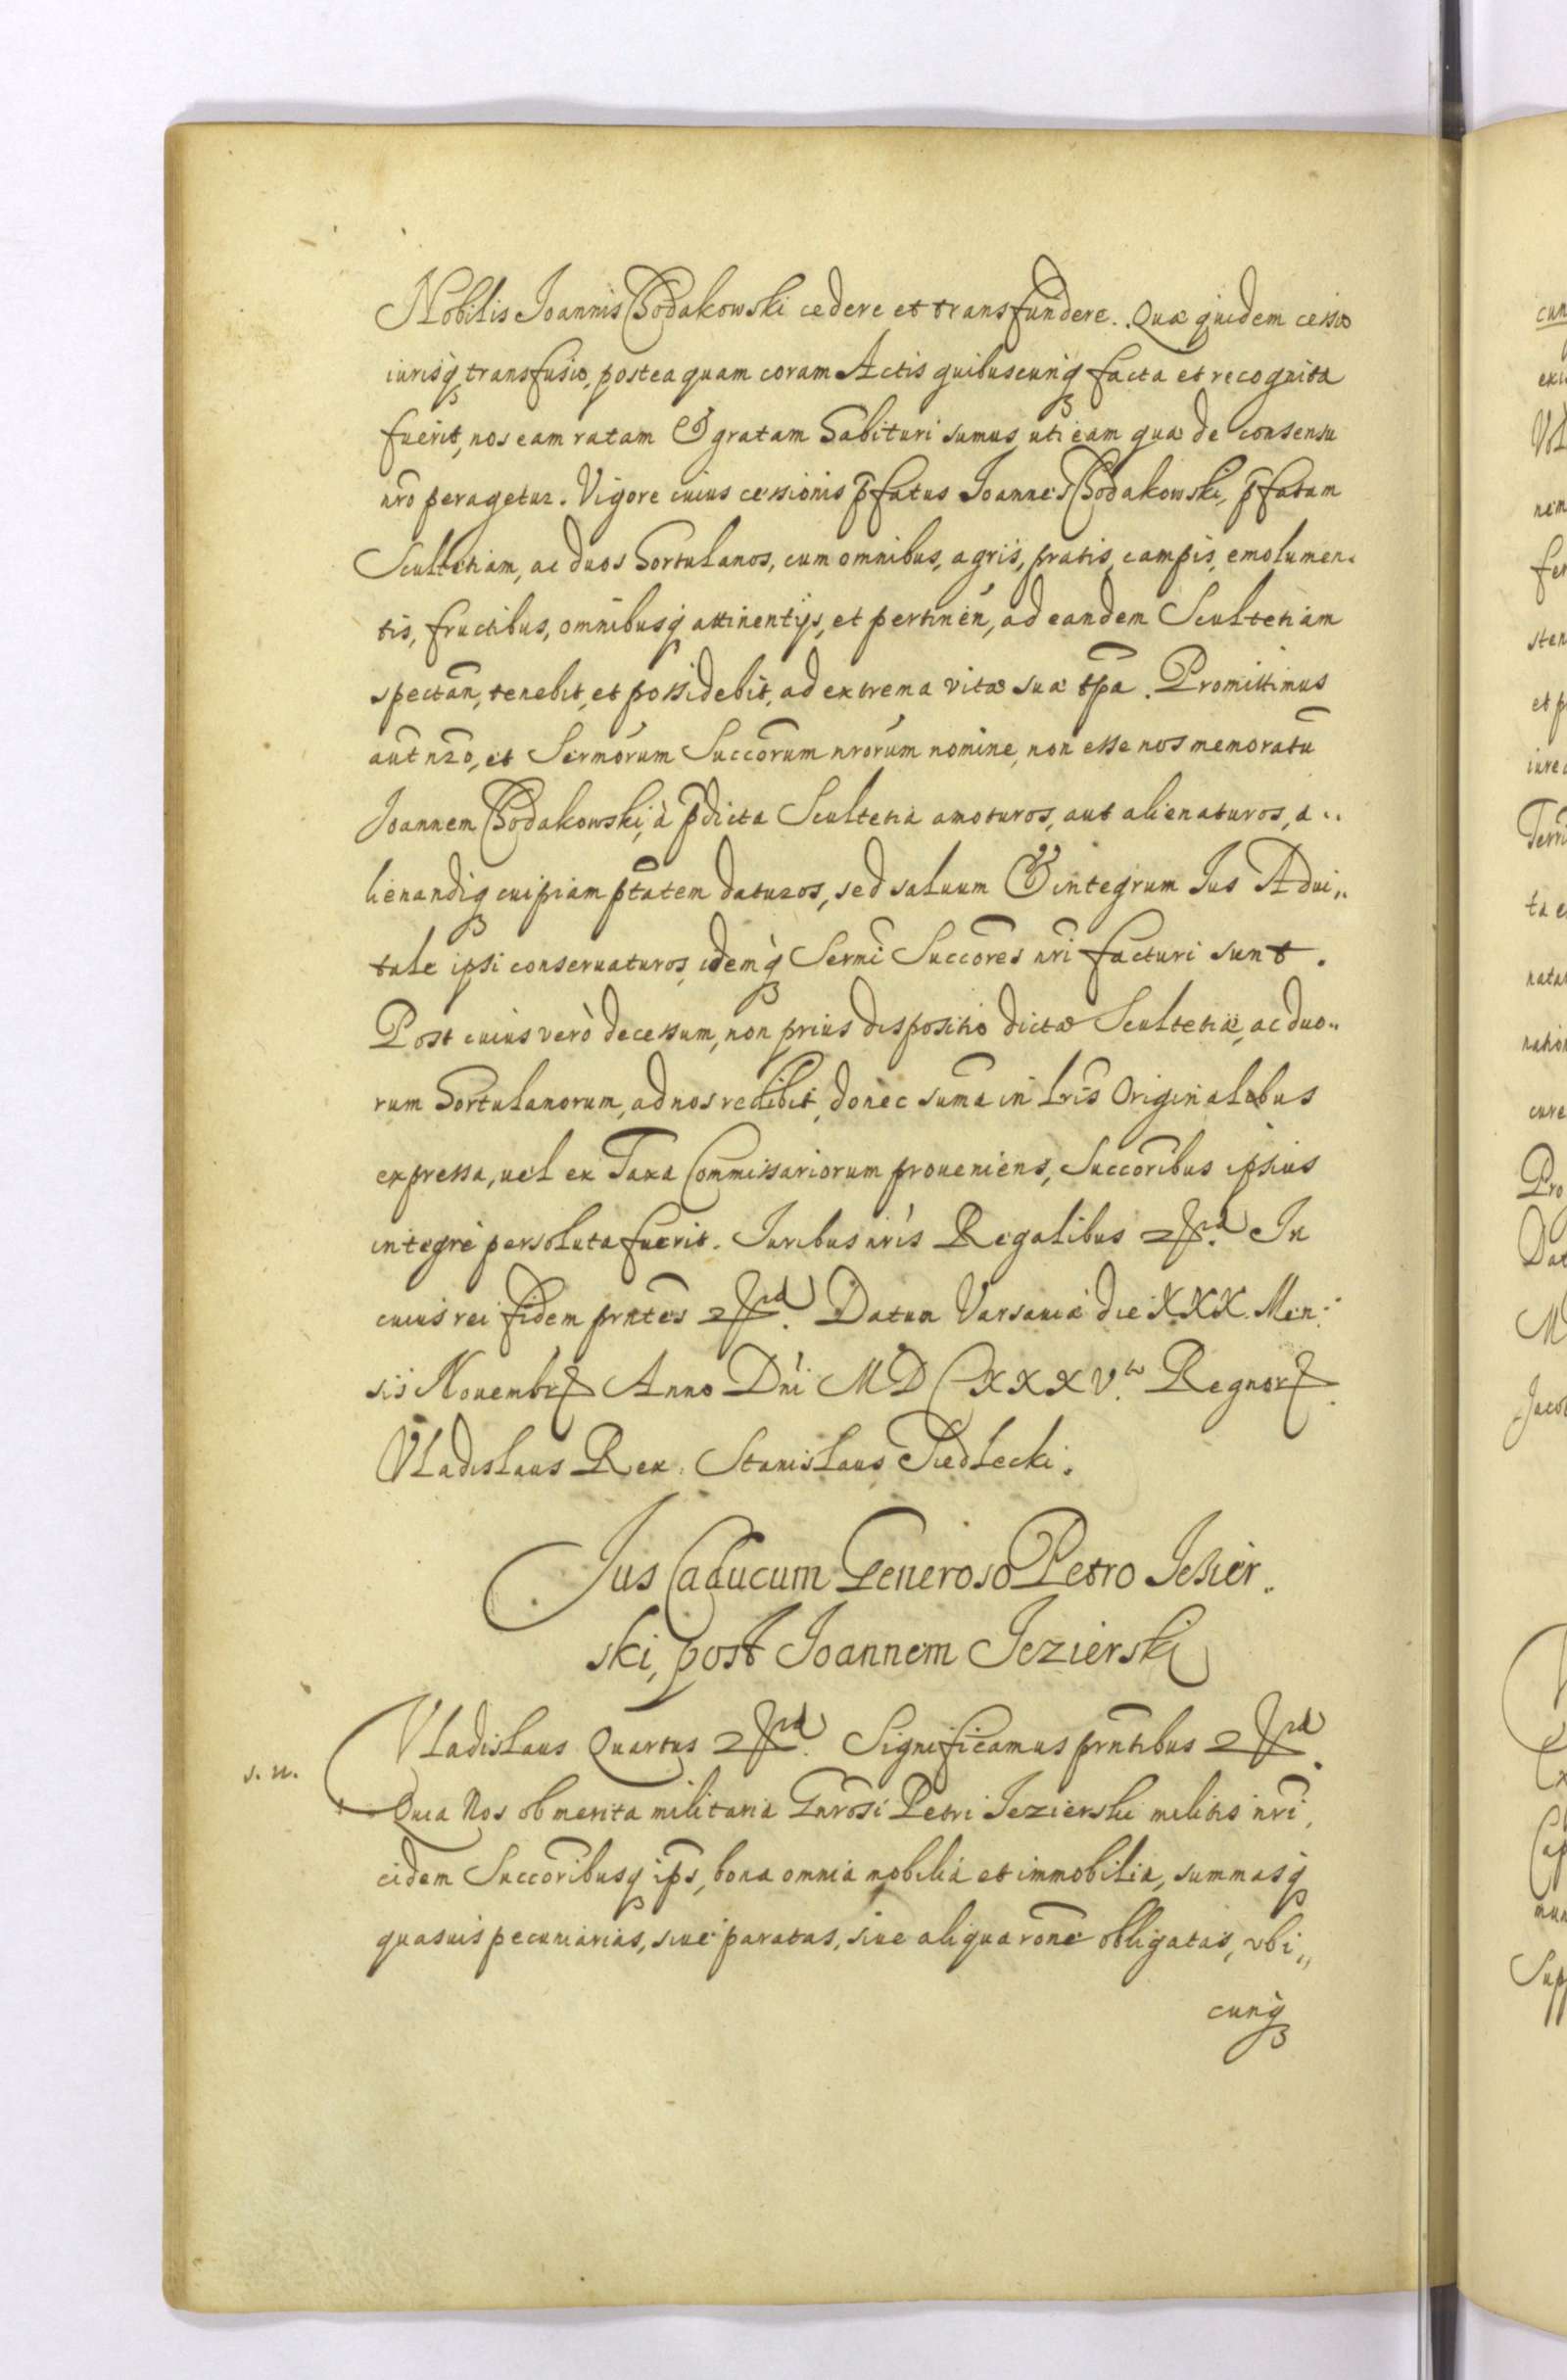 Nobilis Joannis Chodakowski cedere et transfundere. Quæ quidem cessio
iurisq́ȝ transfusio, postea quam coram Actis quibuscunq́ȝ facta et recognita
fuerit, nos eam ratam Et gratam habituri sumus, uti eam quæ de consensu
nr̄o peragetur. Vigore cuius cessionis p̄fatus Joannes Chodakowski, p̄fatam
Scultetiam, ac duos hortulanos, cum omnibus, agris, pratis, campis, emolumen:
tis, fructibus, omnibusq́ȝ attinentijs, et pertinen̄, ad eandem Scultetiam
spectan̄, tenebit, et possidebit, ad extrema vitæ suæ tp̄a. Promittimus
aut̄ nr̄o, et Sermorum Succōrum nrōrum nomine, non esse nos memoratū
Joannem Chodakowski, à p̄dicta Scultetia amoturos, aut alienaturos, a..
lienandiq́ȝ cuipiam ptātem daturos, sed saluum Et integrum Jus Advi,,
tale ipsi conseruaturos, idemq́ȝ Sermī Succōres nr̄i facturi sunt.
Post cuius verò decessum, non prius dispositio dictæ Scultetiæ, ac duo..
rum hortulanorum, ad nos redibit, donec sum̄a in lrīs Originalibus
expressa, uel ex Taxa Commissariorum proueniens, Succōribus ipsius
integrè persoluta fuerit. Juribus nrīs Regalibus &rd. In
cuius rei fidem prn̄tes &rd. Datum Varsaviæ die XXX. Men:
sis Nouembrꝭ Anno Dn̄i MDCXXXV.to Regnorꝝ.
Vladislaus Rex. Stanislaus Siedlecki.
Jus Caducum Generoso Petro Jesier.
ski, post Joannem Jezierski
Vladislaus Quartus &rd. Significamus prn̄tibus &rd.
s. n.
Quia Nos ob merita militaria Gnrōsi Petri Jezierski militis nr̄i,
eidem Succōribusq́ȝ ip̄s, bona omnia mobilia et immobilia, summasq́ȝ
quasuis pecuniarias, siue paratas, siue aliqua rōne obligatas, vbi,,
cunq́ȝ